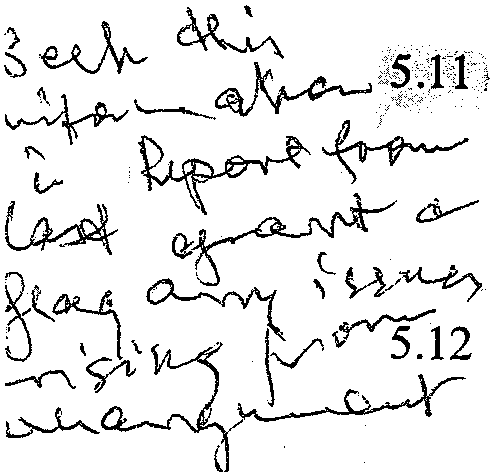 Seek this
information 5.11
in Report from
last grant &
flag any issues
arising from
5.12